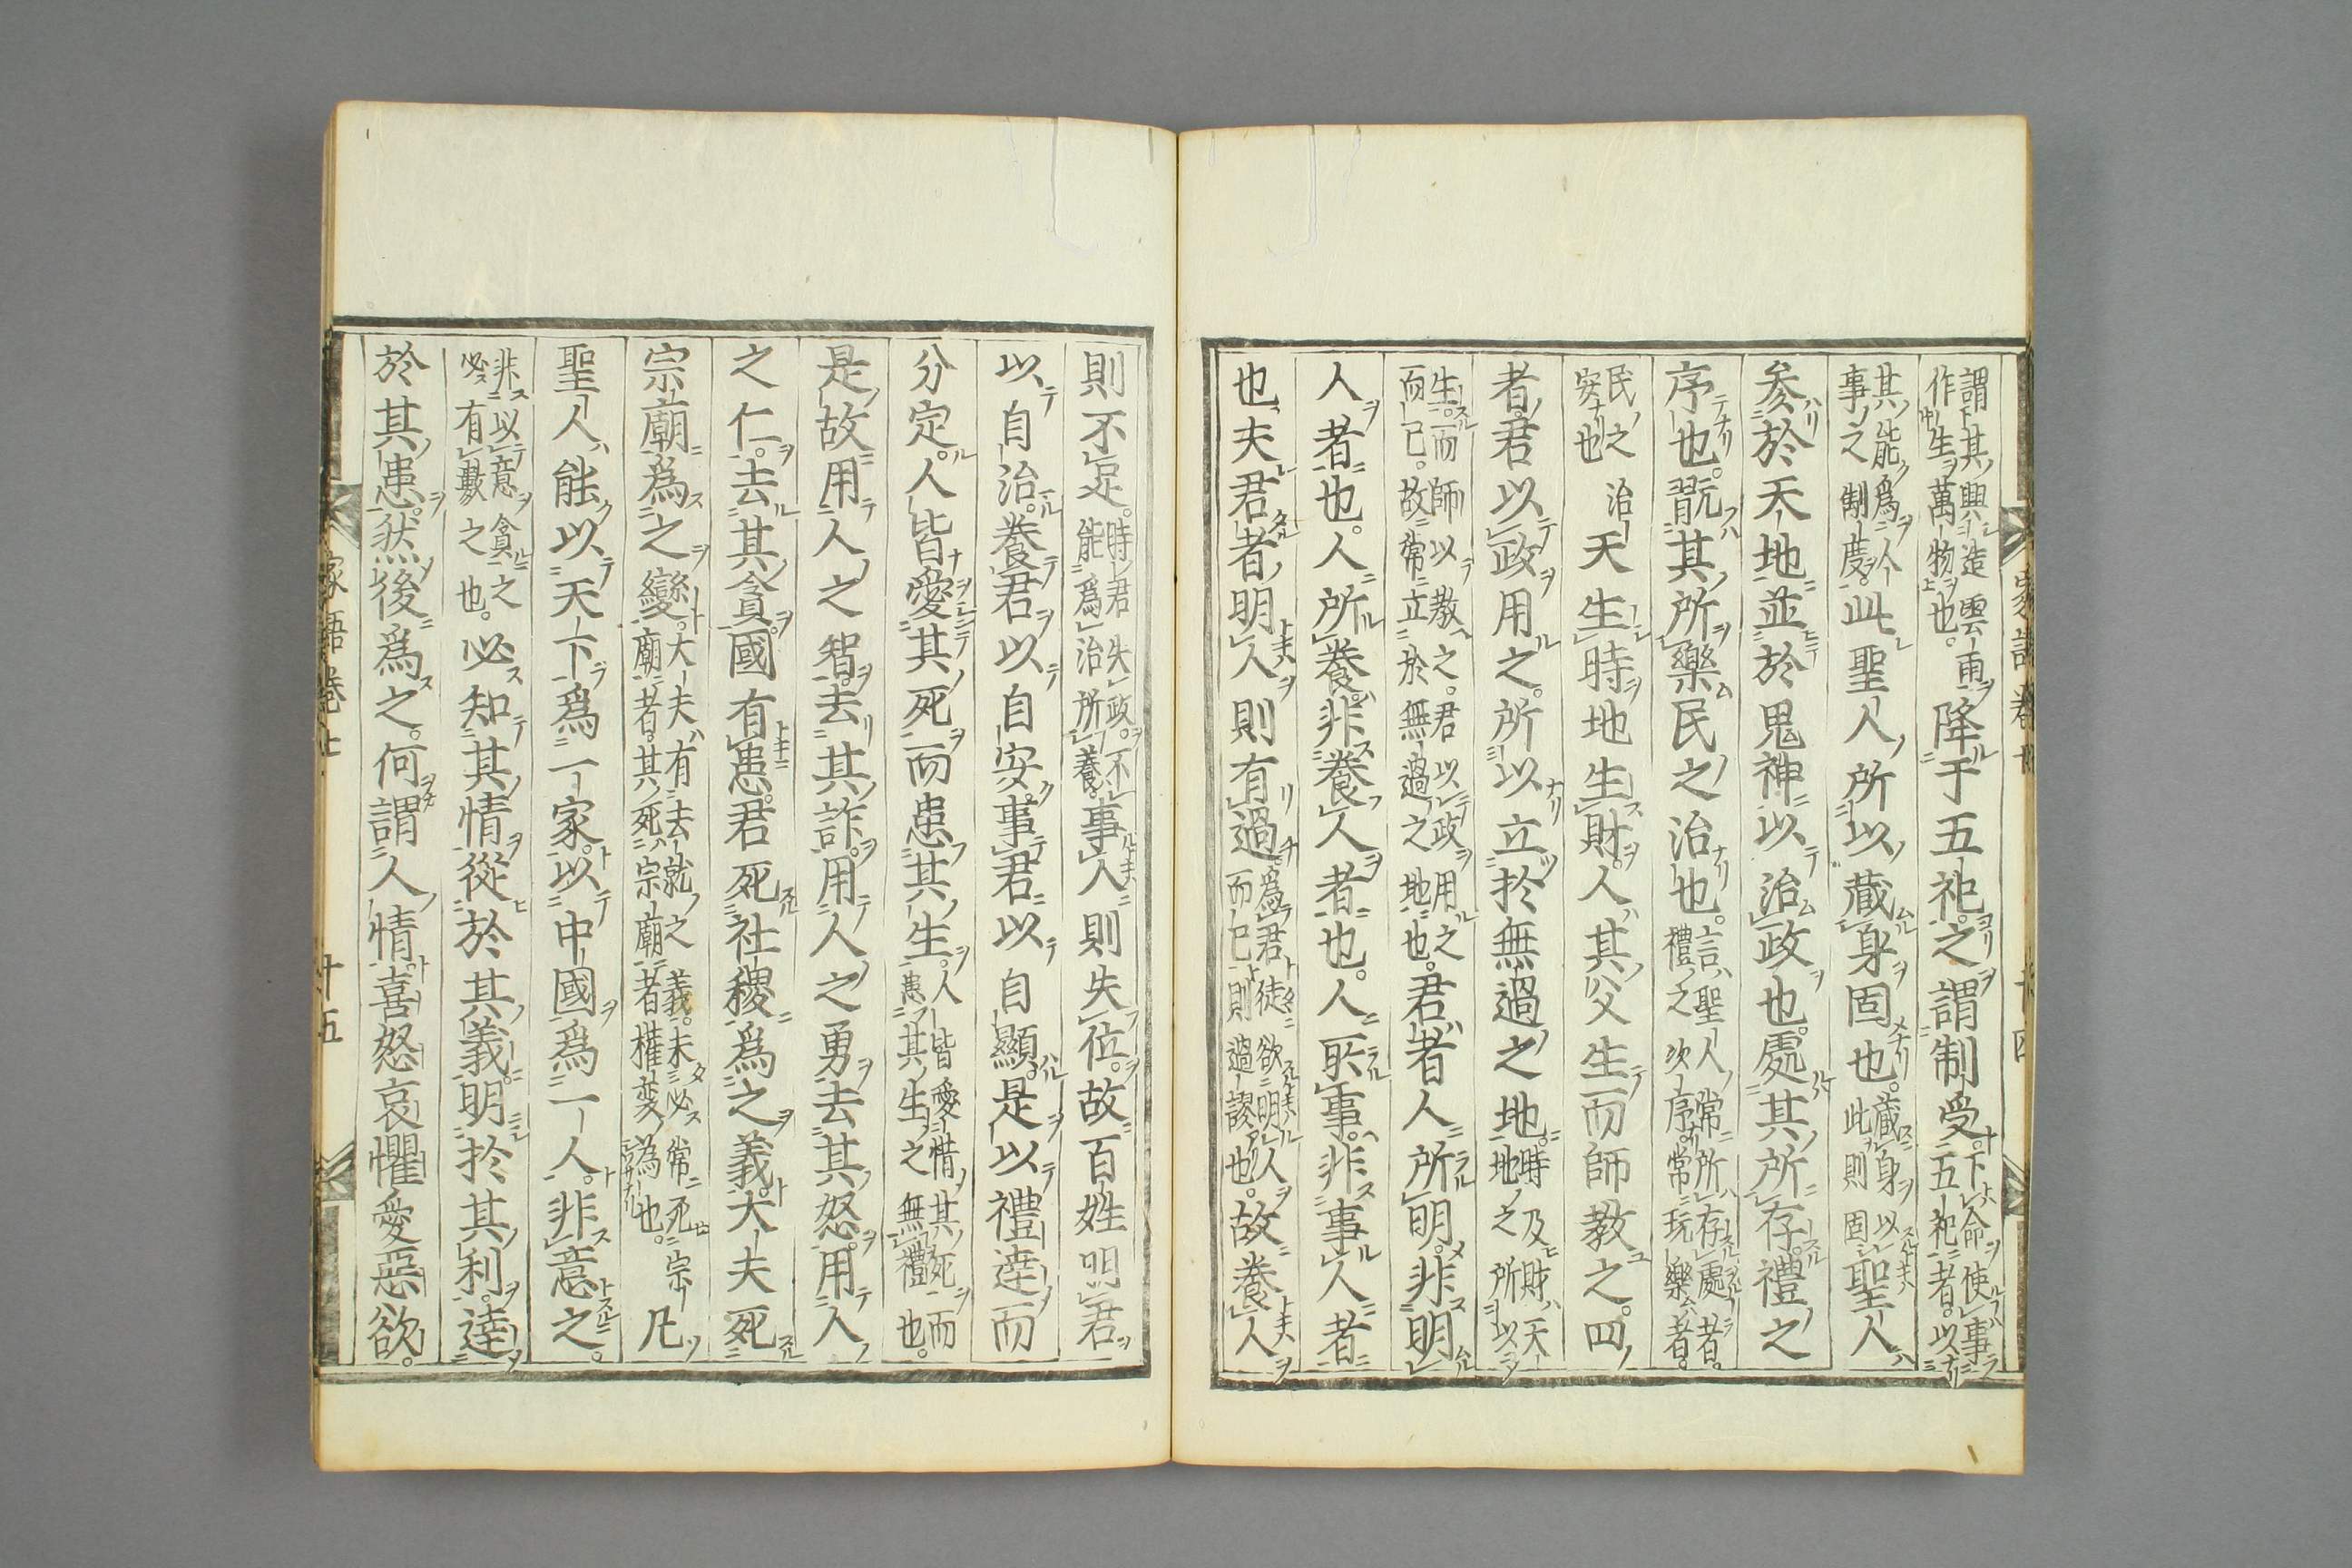 謂其興造雲雨作生萬物也。降于五祀之謂制受下命使事五祀者。以
其能爲人事之制度。此聖人所以藏身固也。藏身以此則固聖人
參於天地並於鬼神以治政也。處其所存禮之
序也。翫其所樂民之治也。言聖人常所存處者。禮之次序常玩樂者。
民之治安也天生時地生財。人其父生而師教之。四
者君以政用之。所以立於無過之地。時及財天地之所以
生。而師以教之。君以政用之而已。故常立於無過之地也。君者人所明。非明
人者也。人所養非養人者也。人所事。非事人者
也、夫君者明人則有過。爲君徒欲明人而已則過謬也。故養人
則不足。時君失政不能爲治所養。事人則失位。故百姓明君
以自治。養君以自安。事君以自顯。是以禮達而
分定。人皆愛其死而患其生。人皆愛惜其死而患其生之無禮也。
是故用人之智去其詐。用人之勇去其怒。用人
之仁。去其貪。國有患。君死社稷爲之義。大夫死
宗廟爲之變。大夫有去就之義。未必常死宗廟者。其死宗廟者權變爲也。凡
聖人能以天下爲一家。以中國爲一人。非意之。
非以意貪之必有數之也。必知其情從於其義。明於其利。達
於其患。然後爲之。何謂人情喜怒哀懼愛惡欲。
家語卷七
十五